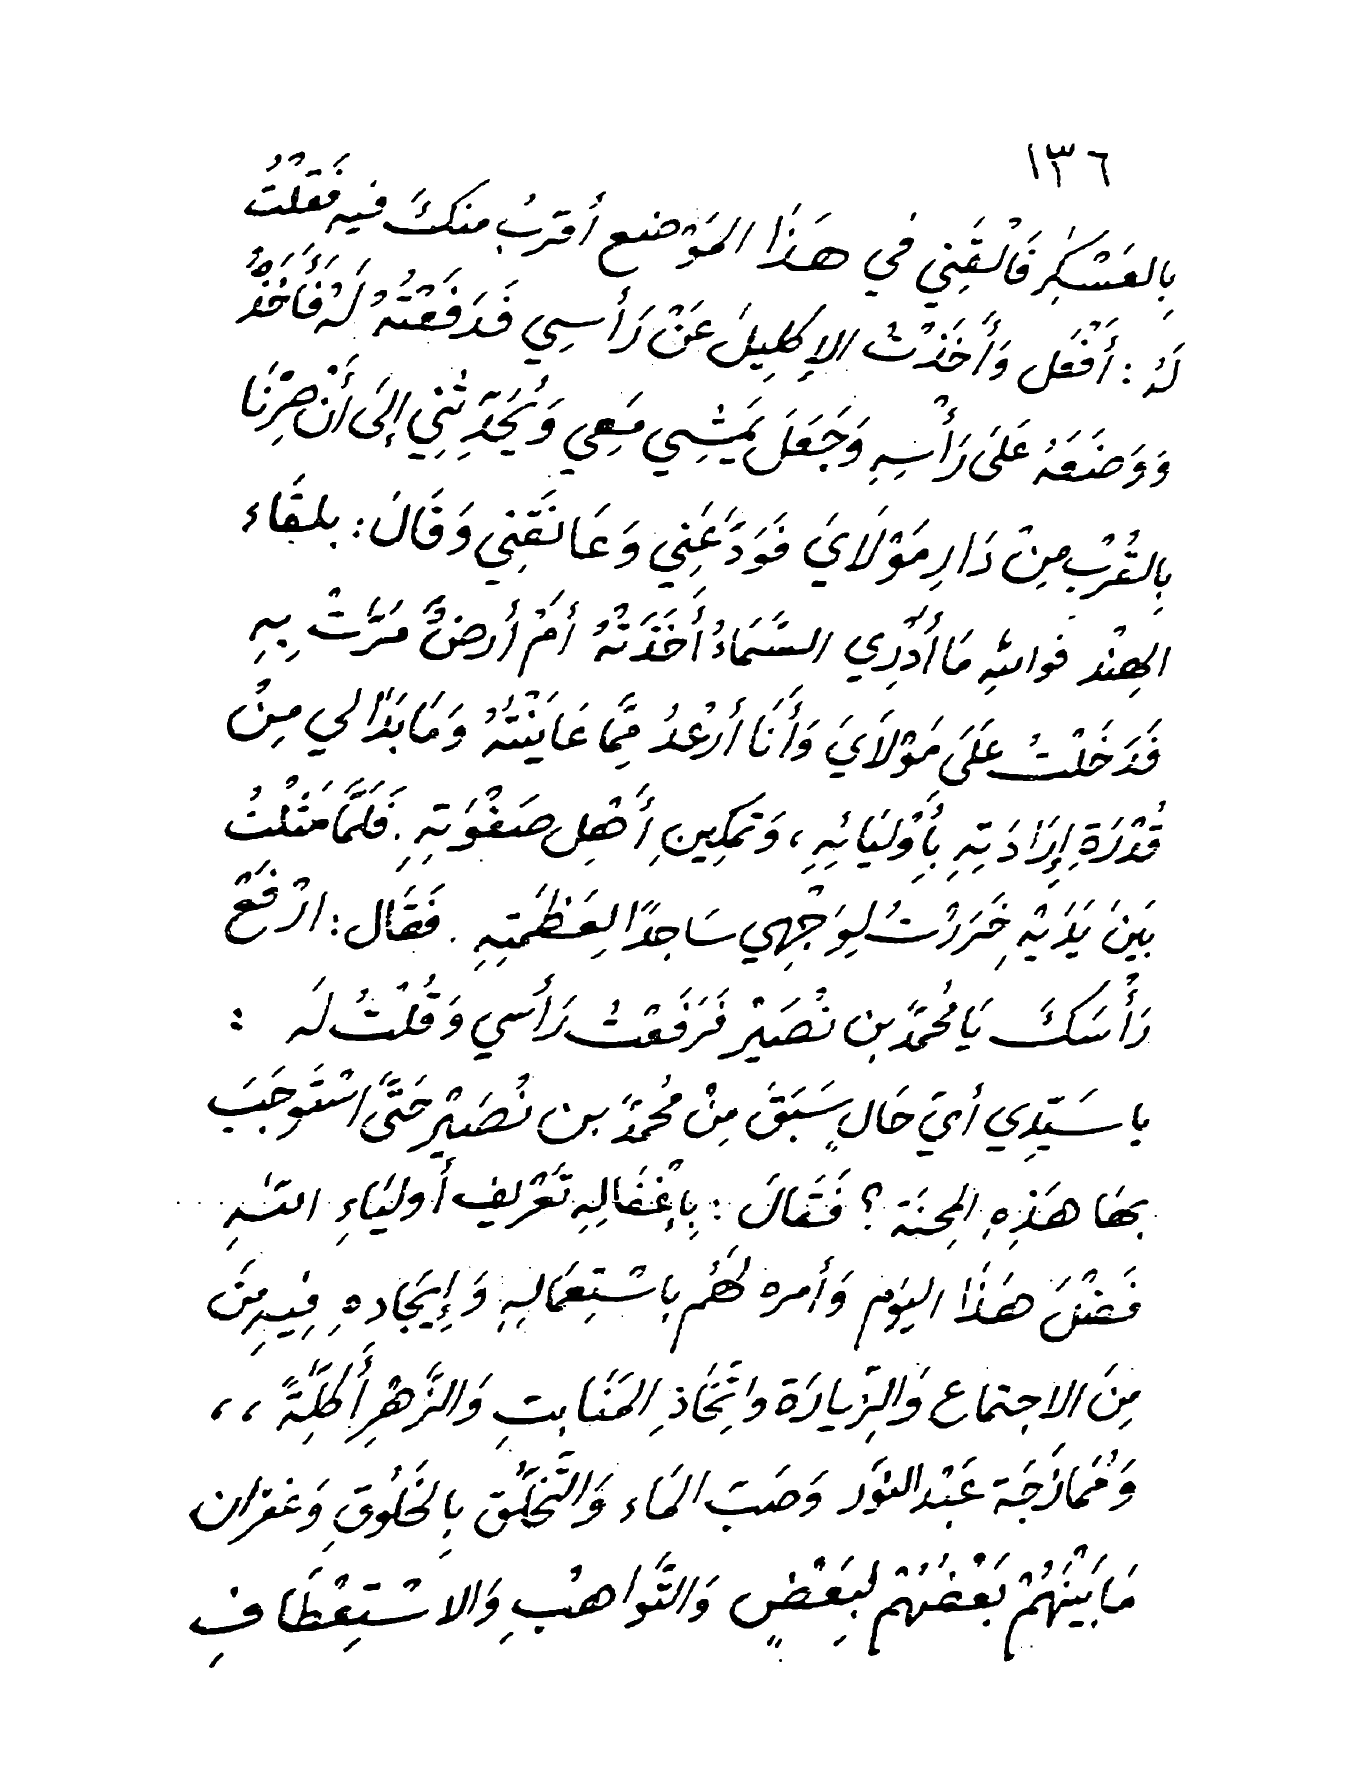 ١٣٦
بِالعَسْكَرِ فَالْقَنِي في هَذَا المَوْضع أقرَبُ منكَ فيهِ فَقُلْتُ
لَهُ : أَفْعَل وَأَخَذْتُ الإكلِيلَ عَنْ رَأْسِي فَدَفَعْتُهُ لَهُ فَأَخَذَهُ
وَوَضَعَهُ عَلَى رَأْسِهِ وَجَعَلَ يَمْشِي مَعِي وَيُحَدِّثُنِي إلَى أَنْ صِرْنَا
بِالقُرْبِ مِنْ دَارِ مَوْلَايَ فَوَدَّعَنِي وَعَانَقَنِي وَقَالَ : بلقَاء
الهِنْد فواللهِ مَا أَدْرِي السَّمَاءُ أَخَذَتْهُ أَمْ أَرضٌ مَرَّتْ بِهِ
فَدَخَلْتُ عَلَى مَوْلَايَ وَأَنَا أَرْعُدُ مِمَّا عَايَنْتُهُ وَمَا بَدَا لي مِنْ
قُدْرَةِ إِرَادَتِهِ بِأَوْلِيَائِهِ ، وَتمكِينِ أَهْلِ صَفْوَتِهِ . فَلَمَّا مَثَلْتُ
بَيْنَ يَدَيْهِ خَرَرْتُ لِوَجْهِي سَاجِدًا لِعَظَمَتِهِ . فَقَال : ارْفَعْ
رَأْسَكَ يَا مُحمَّد بن نُصَيْر فَرَفَعْتُ رَأْسي وَقُلْتُ لَه :
يا سَيّدِي أيَ حَالٍ سَبَقَ مِنْ مُحمَّد بن نُصَيْر حَتَّى اسْتَوجَبَ
بهَا هَذِهِ المِحنَة ؟ فَقَالَ : بِإغْفَالِهِ تَعْرِيفَ أوليَاءِ اللهِ
فَضْلَ هَذَا اليَوم وَأمره لَهُم باسْتِعمَالِهِ وَإِيجَادِهِ فِيهِ مِنَ
مِنَ الاجتماع وَالزِّيارَة واتِّخَاذِ المَنَابتِ وَالزَّهْرِ أَكِلَّةً ، ،
وَمُمَازَجَة عَبْد النور وَصَبّ الماء وَالتَّخَلُّق بِالخَلُوقِ وَغفران
مَا بَيْنَهُمْ بَعْضَهُمْ لبَعْضٍ وَالتَّواهُبِ وَالاسْتِعْطَافِ